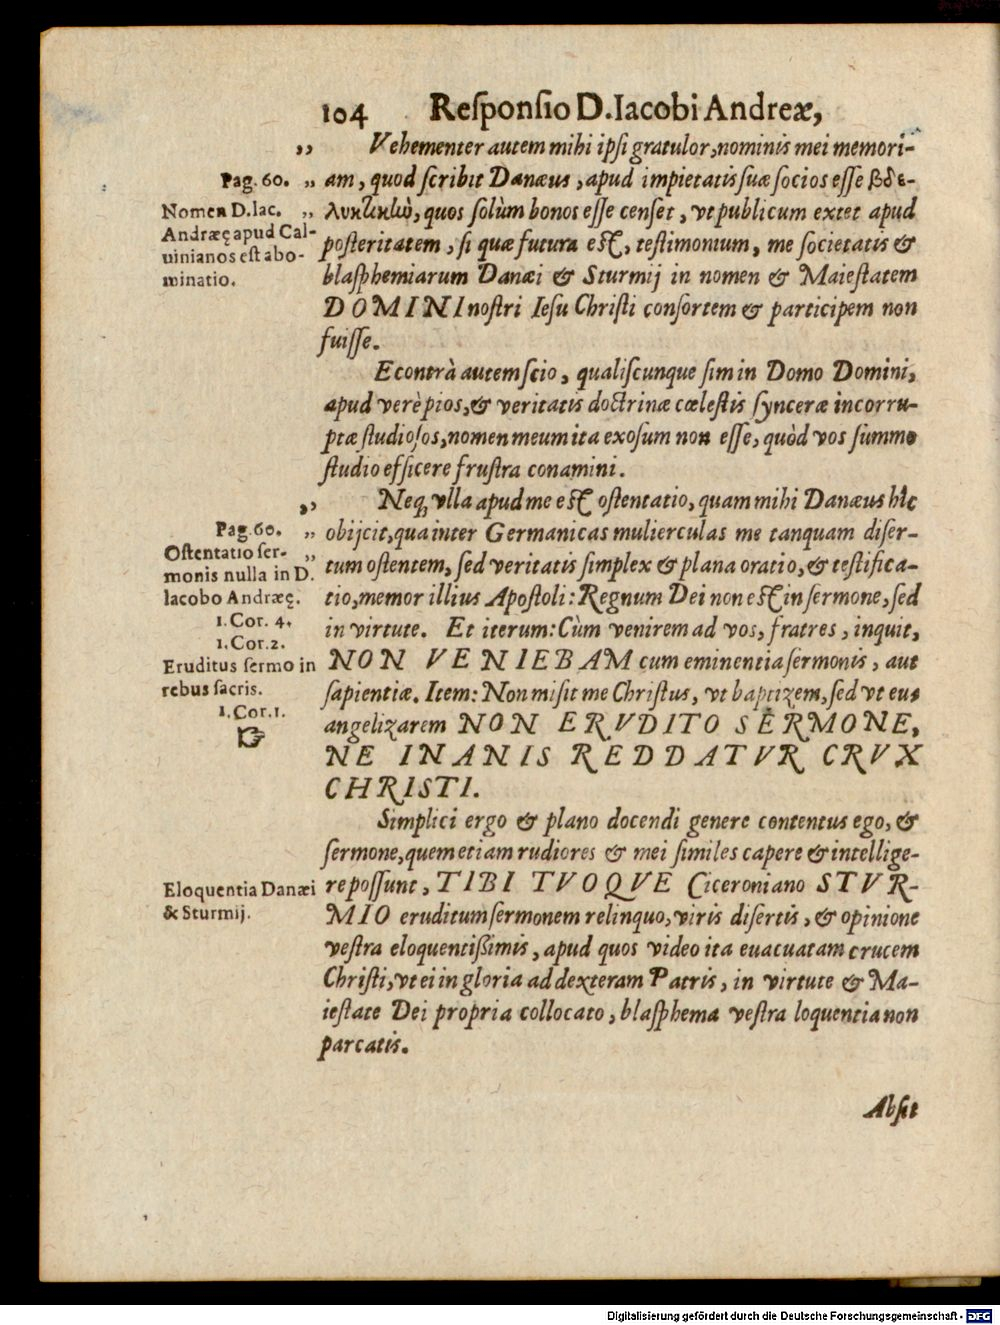 104 Reſponſio D. Iacobi Andreæ,
„ Vehementer autem mihi ipſi gratulor, nominis mei memori-
Pag. 60. „ am, quod ſcribit Danæus, apud impietatis ſuæ ſocios eſſe βδε-
Nomen D. Iac. „ λυκτικὼ, quos ſolùm bonos eſſe cenſet, vt publicum extet apud
Andræę apud Cal- poſteritatem, ſi quæ futura est, teſtimonium, me ſocietatis &
uinianos eſt abo- blaſphemiarum Danæi & Sturmij in nomen & Maieſtatem
minatio. DOMINI noſtri Ieſu Chriſti conſortem & participem non
fuiſſe.
E contrà autem ſcio, qualiſcunque ſim in Domo Domini,
apud verè pios, & veritatis doctrinæ cœleſtis ſynceræ incorru-
ptæ ſtudioſos, nomen meum ita exoſum non eſſe, quòd vos ſummo
ſtudio efficere fruſtra conamini.
„ Neq; vlla apud me est oſtentatio, quam mihi Danæus hîc
Pag. 60. „ obijcit, qua inter Germanicas mulierculas me tanquam diſer-
Oſtentatio ſer- „ tum oſtentem, ſed veritatis ſimplex & plana oratio, & teſtifica-
monis nulla in D.
Iacobo Andræę. tio, memor illius Apoſtoli: Regnum Dei non est in ſermone, ſed
1. Cor. 4. in virtute. Et iterum: Cùm venirem ad vos, fratres, inquit,
1. Cor. 2.
Eruditus ſermo in NON VENIEBAM cum eminentia ſermonis, aut
rebus ſacris. ſapientiæ. Item: Non miſit me Chriſtus, vt baptizem, ſed vt eua
1. Cor. 1. angelizarem NON ERVDITO SERMONE,
☞ NE INANIS REDDATVR CRVX
CHRISTI.
Simplici ergo & plano docendi genere contentus ego, &
ſermone, quem etiam rudiores & mei ſimiles capere & intellige-
Eloquentia Danæi re poſſunt, TIBI TVOQVE Ciceroniano STVR-
& Sturmij. MIO eruditum ſermonem relinquo, viris diſertis, & opinione
veſtra eloquentißimis, apud quos video ita euacuatam crucem
Chriſti, vt ei in gloria ad dexteram Patris, in virtute & Ma-
ieſtate Dei propria collocato, blaſphema veſtra loquentia non
parcatis.
Abſit
Digitalisierung gefördert durch die Deutsche Forschungsgemeinschaft - DFG